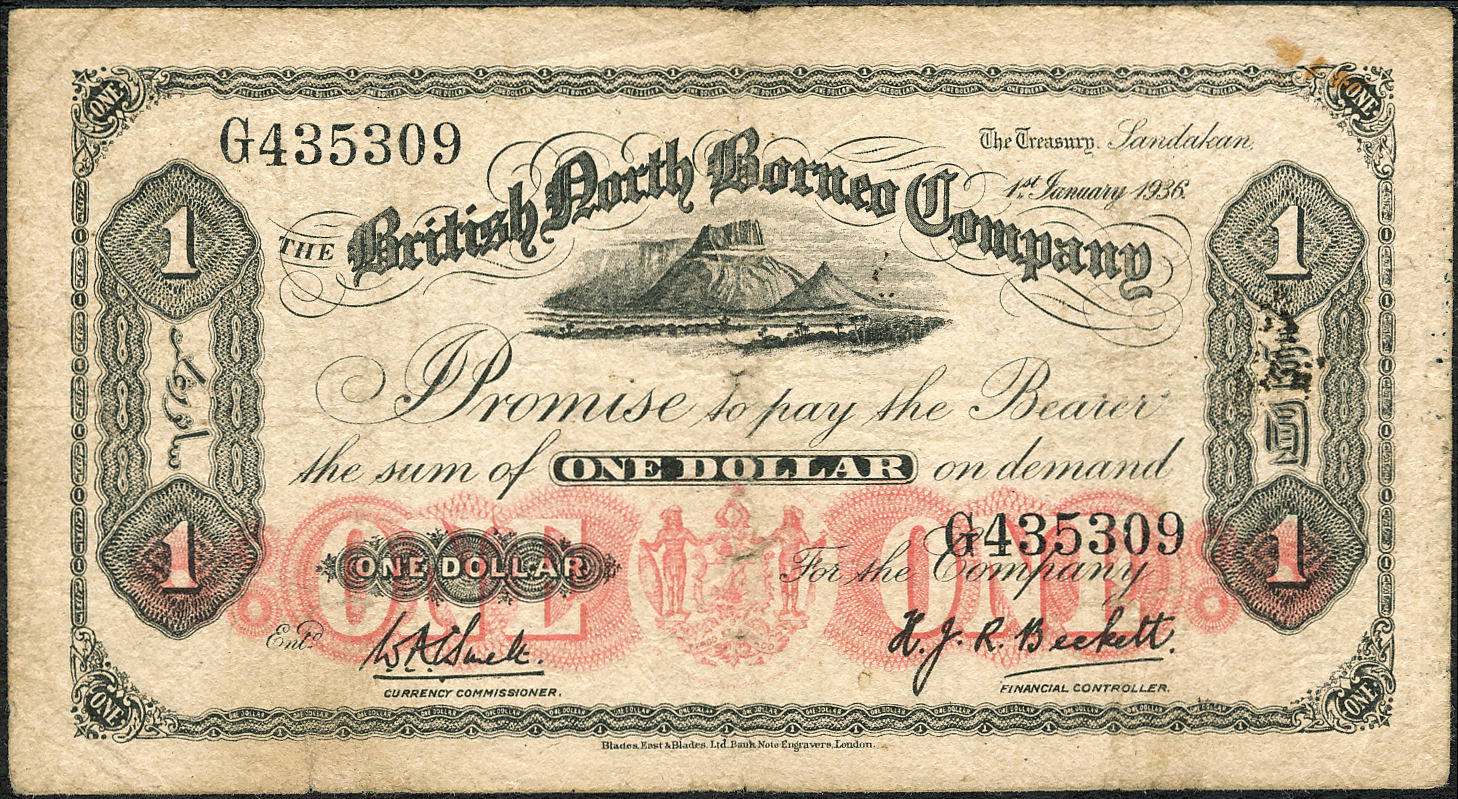 ONE
ONE
G435309
The Treasury. Sandakan,
1st January 1936.
THE British North Borneo Company
1
1
ساتو رڠݢيت
I Promise to pay the Bearer
the sum of ONE DOLLAR on demand
ONE
ONE
G435309
1
ONE DOLLAR
For the Company
1
Entd.
H. J. R. Beckett.
CURRENCY COMMISSIONER.
FINANCIAL CONTROLLER.
ONE
ONE
Blades, East & Blades, Ltd. Bank Note Engravers, London.